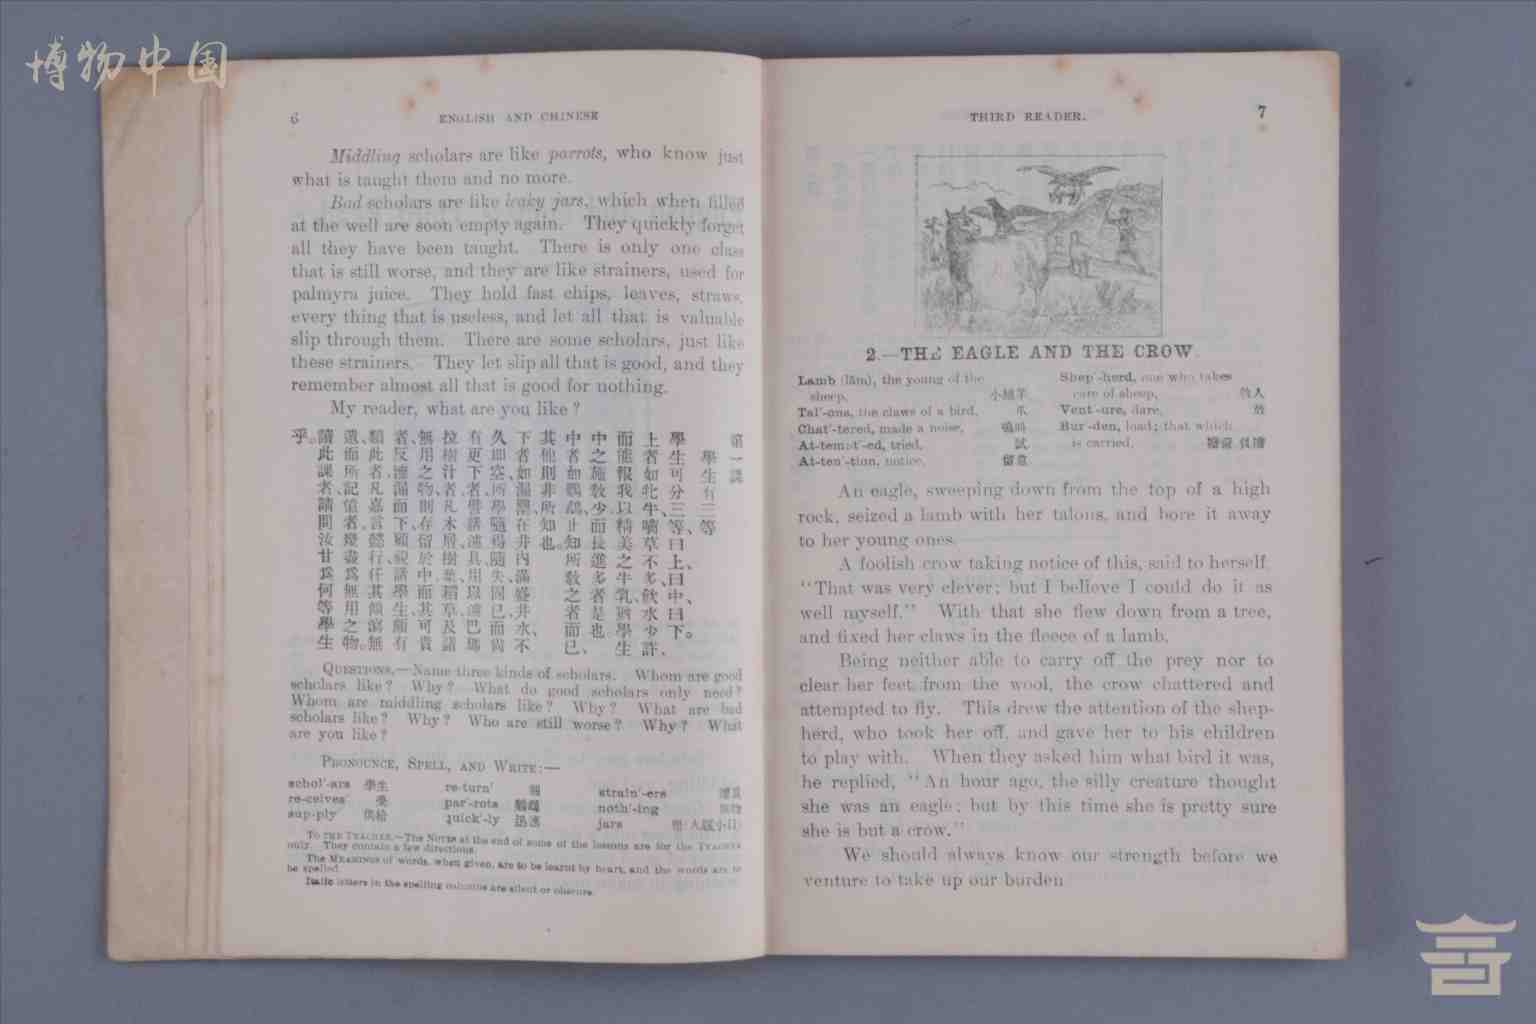 博物中国
6
ENGLISH AND CHINESE
Middling scholars are like parrots, who know just
what is taught them and no more.
Bad scholars are like leaky jars, which when filled
at the well are soon empty again. They quickly forget
all they have been taught. There is only one class
that is still worse, and they are like strainers, used for
palmyra juice. They hold fast chips, leaves, straws,
every thing that is useless, and let all that is valuable
slip through them. There are some scholars, just like
these strainers. They let slip all that is good, and they
remember almost all that is good for nothing.
My reader, what are you like?
第一課
學生有三等
學生可分三等、曰上、曰中、曰下。
上者如牝牛、嚼草不多、飲水少許、
而能報我以精美之牛乳、猶學生
中之施教少、而長進多者是也。
中者如鸚鵡、止知所教之者而已、
其他則非所知也。
下者如漏甖、在井內滿盛井水、不
久即空、所學隨得隨失、固已而尚
有更下者、譬諸濾具、用以濾巴瑪
拉樹汁者、凡木屑、樹葉、稻草、及諸
無用之物、則存留於中、而其可貴
者、濾漏而下、顧視諸學生、頗有
類此者、凡嘉言懿行、任其傾瀉無
遺、而所記憶者、幾盡爲無用之物。
讀此課者、請問汝甘爲何等學生
乎。
QUESTIONS.—Name three kinds of scholars. Whom are good
scholars like? Why? What do good scholars only need?
Whom are middling scholars like? Why? What are bad
scholars like? Why? Who are still worse? Why? What
are you like?
PRONOUNCE, SPELL, AND WRITE:—
schol'-ars 學生 re-turn' 報 strain'-ers 濾具
re-ceives' 受 par'-rots 鸚鵡 noth'-ing 無物
sup-ply' 供給 quick'-ly 迅速 jars
TO THE TEACHER.—The NOTES at the end of some of the lessons are for the TEACHER
only. They contain a few directions.
The MEANINGS of words, when given, are to be learnt by heart, and the words are to
be spelled.
Italic letters in the spelling columns are silent or obscure.
THIRD READER.
7
2.—THE EAGLE AND THE CROW.
Lamb (lăm), the young of the
sheep, 小綿羊
Tal'-ons, the claws of a bird, 爪
Chat'-tered, made a noise, 鳴叫
At-tempt'-ed, tried, 試
At-ten'-tion, notice, 留意
Shep'-herd, one who takes
care of sheep, 牧人
Vent'-ure, dare, 敢
Bur'-den, load; that which
is carried,
An eagle, sweeping down from the top of a high
rock, seized a lamb with her talons, and bore it away
to her young ones.
A foolish crow taking notice of this, said to herself,
"That was very clever; but I believe I could do it as
well myself." With that she flew down from a tree,
and fixed her claws in the fleece of a lamb.
Being neither able to carry off the prey nor to
clear her feet from the wool, the crow chattered and
attempted to fly. This drew the attention of the shep-
herd, who took her off, and gave her to his children
to play with. When they asked him what bird it was,
he replied, "An hour ago, the silly creature thought
she was an eagle; but by this time she is pretty sure
she is but a crow."
We should always know our strength before we
venture to take up our burden